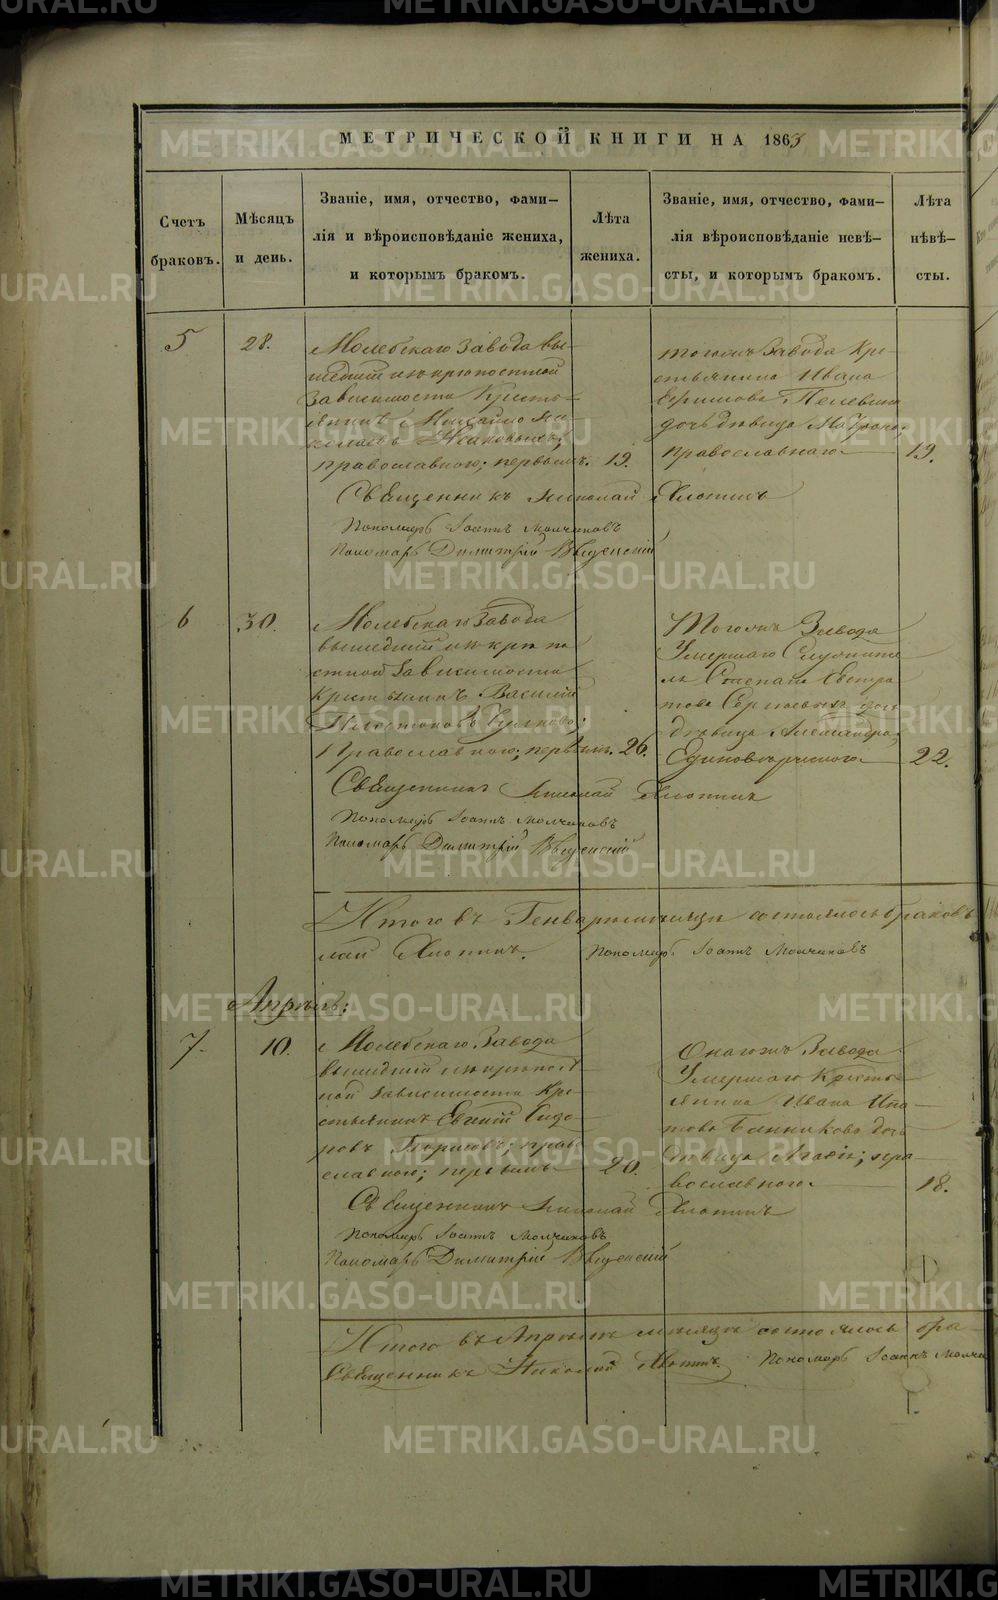 METRIKI.GASO-URAL.RU
МЕТРИЧЕСКОЙ КНИГИ НА 1863
Счетъ браковъ.
Мѣсяцъ и день.
Званіе, имя, отчество, фами-
лія и вѣроисповѣданіе жениха,
и которымъ бракомъ.
Лѣта жениха.
Званіе, имя, отчество, фами-
лія вѣроисповѣданіе невѣ-
сты, и которымъ бракомъ.
Лѣта нѣвѣ-
сты.
5
28.
Молебскаго завода вы-
шедшій изъ крѣпостной
зависимости Кресть-
янинъ Михайло Ни-
колаевъ
православного; первымъ.
19.
тогожъ Завода Кре-
стьянина Ивана
Ефимова Пелевина
дочь дѣвица Матрона;
православнаго
19.
Священникъ Николай Хлопинъ
Пономарь Іоаннъ Молчановъ
Пономарь Димитрій Введенскій
6
30.
Молебскаго Завода
вышедшій изъ крѣпо
стной Зависимости
Крестьянинъ Василій
Православного, первымъ.
26.
Тогожъ Завода
Умершаго Служите
ля Степана Евстра
това Сергѣева дочь
дѣвица Александра,
Единовѣрческого
22.
Священникъ Николай Хлопинъ
Пономарь Іоаннъ Молчановъ
Пономарь Димитрій Введенскій
Итого въ Генварѣ мѣсяцѣ состоялось браковъ
лай Хлопинъ. Пономарь Іоаннъ Молчановъ
Апрѣль:
7.
10.
Молебскаго Завода
вышедшій изъ крѣпост
ной Зависимости Кре-
стьянинъ Евгеній Сидо-
ровъ право-
славного; первымъ
20.
Онагожъ Завода
Умершаго Кресть-
янина Ивана Ипа-
това Банникова дочь
дѣвица Агафія; пра-
вославного.
18.
Священникъ Николай Хлопинъ
Пономарь Іоаннъ Молчановъ
Пономарь Димитрій Введенскій
Итого въ Апрѣлѣ мѣсяцѣ состоялось бра-
Священникъ Николай Хлопинъ. Пономарь Іоаннъ Молча